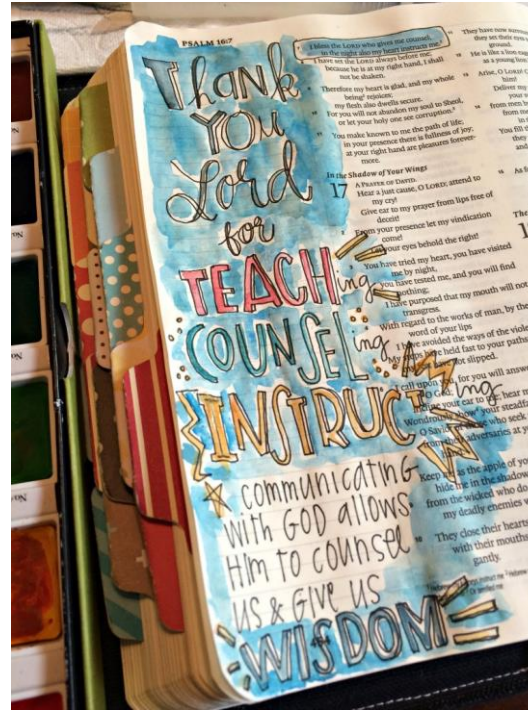 PSALM 16:7
Thank
YOU
Lord
for
TEACHing
COUNSELing
INSTRUCTing
communicating
with GOD allows
Him to counsel
us & Give us
WISDOM
I bless the LORD who gives me counsel;
in the night also my heart instructs me.
I have set the LORD always before me;
because he is at my right hand, I shall
not be shaken.
Therefore my heart is glad, and my whole
being rejoices;
my flesh also dwells secure.
For you will not abandon my soul to Sheol,
or let your holy one see corruption.
You make known to me the path of life;
in your presence there is fullness of joy;
at your right hand are pleasures forever-
more.
In the Shadow of Your Wings
17 A PRAYER OF DAVID.
Hear a just cause, O LORD; attend to
my cry!
Give ear to my prayer from lips free of
deceit!
From your presence let my vindication
come!
your eyes behold the right!
You have tried my heart, you have visited
me by night,
you have tested me, and you will find
nothing;
I have purposed that my mouth will not
transgress.
With regard to the works of man, by the
word of your lips
I have avoided the ways of the
My steps have held fast to your paths
not slipped.
I call upon you, for you will answer
O God;
your ear to me; hear
Wondrously show your
O Savior of those who seek
adversaries at
Keep me as the apple of
hide me in the shadow
from the wicked who do
my deadly enemies
They close their hearts
with their mouths
gantly.
They have now
they set their eyes
ground.
He is like a lion
as a young lion
Arise, O LORD
him!
Deliver my
from men
from
You fill
their
and
As